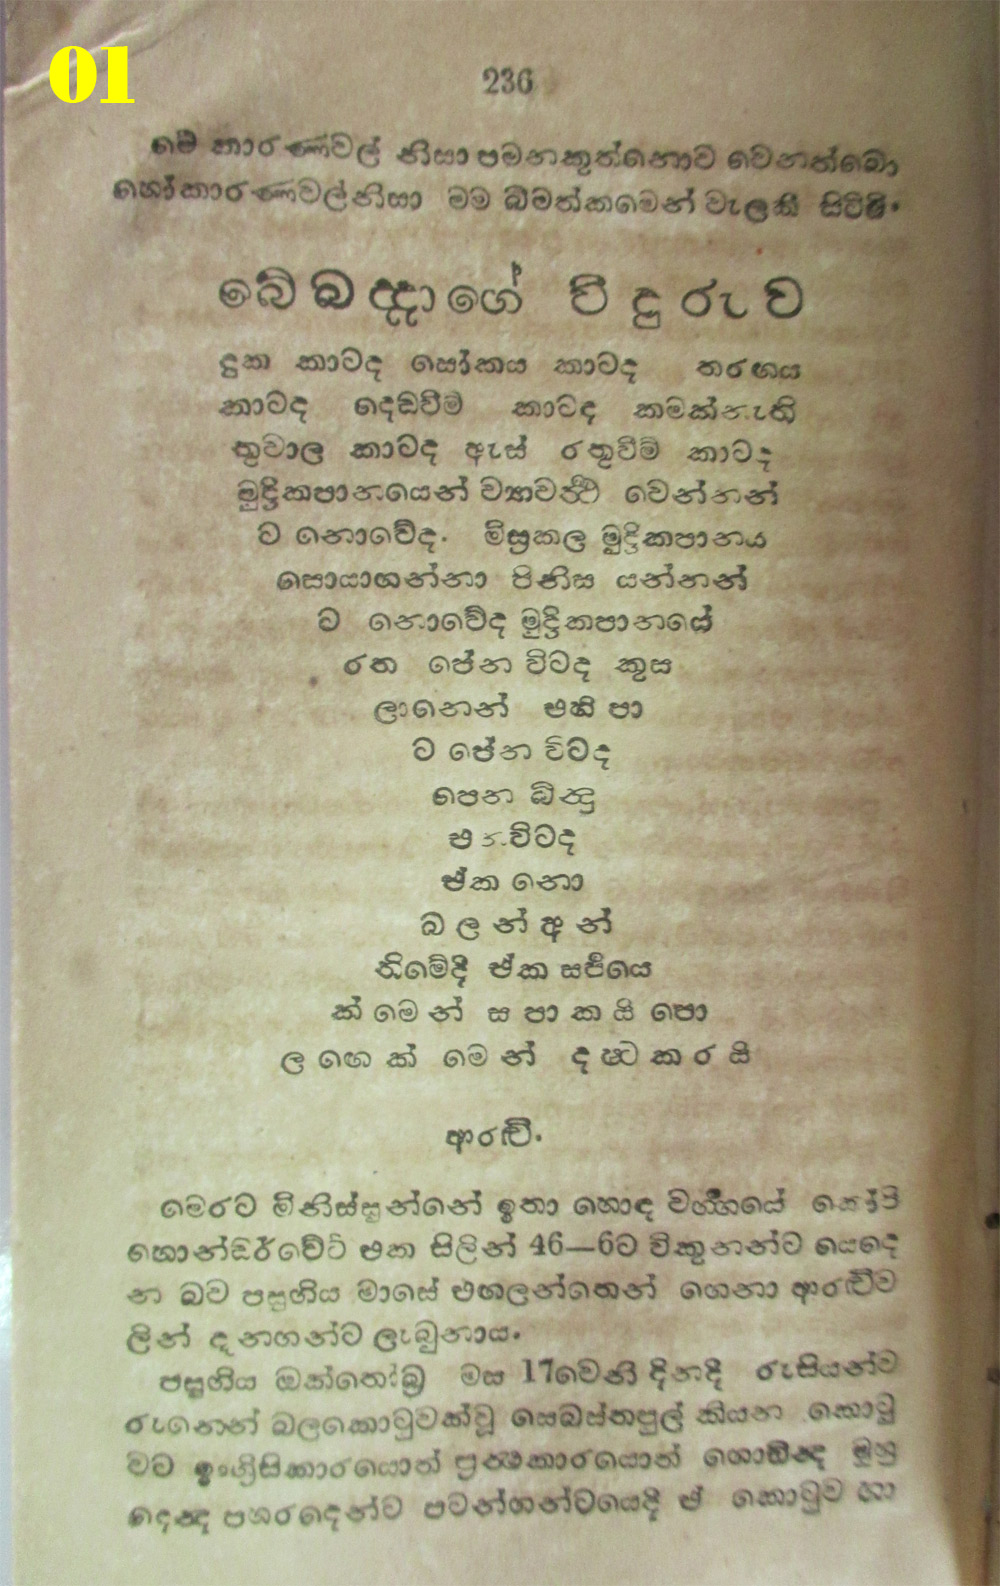 01
236
මේ කාරණාවල් නිසා පමනකුත්නොව වෙනත්බො
හෝකාරණාවල්නිසා මම බීමත්කමෙන් වැලකී සිටිමි.
බේබද්දාගේ වීදුරුව
දුක කාටද සෝකය කාටද තරඟය
කාටද දෙඩවීම් කාටද කමක්නැති
තුවාල කාටද ඇස් රතුවීම් කාටද
මුද්‍රිකපානයෙන් වෙන්නන්
ට නොවේද. මිස්‍රකල මුද්‍රිකපානය
සොයාගන්නා පිනිස යන්නන්
ට නොවේද මුද්‍රිකපානයේ
රත පේන විටද කුස
ලානෙන් එහි පා
ට පේන විටද
පෙන බින්දු
විටද
ඒක නො
බලන් අන්
තිමේදී ඒක සර්‍පයෙ
ක් මෙන් සපාකයි පො
ලඟෙක් මෙන් දෂ්ටකරයි
ආරංචි.
මෙරට මිනිස්සුන්නේ ඉතා හොඳ වර්‍ගයේ කෝපි
හොන්ඩර්වේට් එක සිලින් 46—6ට විකුනන්ට යෙදෙ
න බව පසුගිය මාසේ එඟලන්තෙන් ගෙනා ආරංචිව
ලින් දැනගන්ට ලැබුනාය.
පසුගිය ඔක්තෝබ්‍ර මස 17වෙනි දිනදී රුසියන්ව
රුනෙන් බලකොටුවක්වූ සෙබස්තපුල් කියන කොටු
වට ඉංග්‍රිසිකාරයොත් ප්‍රන්සකාරයොත් ගොඩින්ද මුහු
දෙන්ද පහරදෙන්ට පටන්ගන්ටයෙදී ඒ කොටුව හා